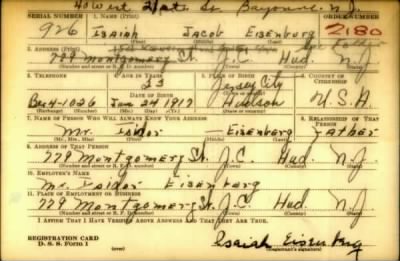 40 West 21st St. Bayonne N.J.
SERIAL NUMBER 1. NAME (Print) ORDER NUMBER
926 Isaiah Jacob Eisenburg 2180
(First) (Middle) (Last)
2. ADDRESS (Print)
779 Montgomery St. J.C. Hud. N.J.
(Number and street or R. F. D. number) (Town) (County) (State)
3. TELEPHONE 4. AGE IN YEARS 5. PLACE OF BIRTH 6. COUNTRY OF CITIZENSHIP
23 Jersey City
DATE OF BIRTH
Be 4-1026 Jan 24 1917 Hudson U.S.A.
(Exchange) (Number) (Mo.) (Day) (Yr.) (State or country)
7. NAME OF PERSON WHO WILL ALWAYS KNOW YOUR ADDRESS 8. RELATIONSHIP OF THAT PERSON
Mr. Isidor Eisenberg Father
(Mr., Mrs., Miss) (First) (Middle) (Last)
9. ADDRESS OF THAT PERSON
779 Montgomery St. J.C. Hud. N.J.
(Number and street or R. F. D. number) (Town) (County) (State)
10. EMPLOYER'S NAME
Mr. Isidor Eisenberg
11. PLACE OF EMPLOYMENT OR BUSINESS
779 Montgomery St. J.C. Hud. N.J.
(Number and street or R. F. D. number) (Town) (County) (State)
I AFFIRM THAT I HAVE VERIFIED ABOVE ANSWERS AND THAT THEY ARE TRUE.
REGISTRATION CARD
D. S. S. FORM 1 (over) Isaiah Eisenberg
(Registrant's signature)